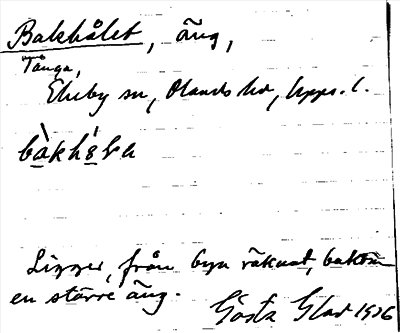 Bakhålet, äng,
Tånga,
Ekeby sn, Olands hd, Upps. l.
bàkhå̀lɐ
Ligger, från byn räknat, bakom
en större äng.
Gösta Glad 1936